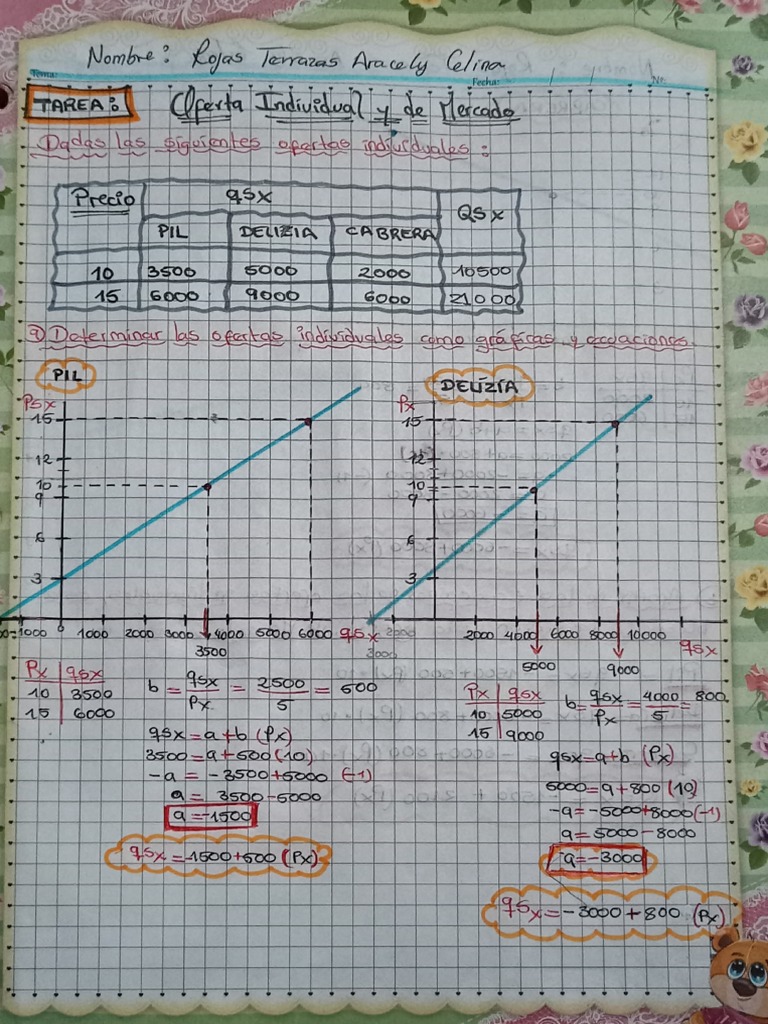 Nombre: Rojas Terrazas Aracely Celina
Tema: Fecha: / / No.
TAREA: Oferta Individual y de Mercado
Dadas las siguientes ofertas individuales:
Precio qsx QSX
PIL DELIZIA CABRERA
10 3500 5000 2000 10500
15 6000 9000 6000 21000
a) Determinar las ofertas individuales como gráficas y ecuaciones.
PIL
Psx
15
12
10
9
6
3
-1000 0 1000 2000 3000 4000 5000 6000 qsx
3500
Px qsx
10 3500
15 6000
b = qsx / Px = 2500 / 5 = 500
qsx = a + b (Px)
3500 = a + 500 (10)
-a = -3500 + 5000 (-1)
a = 3500 - 5000
a = -1500
qsx = -1500 + 500 (Px)
DELIZIA
Px
15
12
10
9
6
3
2000 4000 6000 8000 10000 qsx
3000
5000 9000
Px qsx
10 5000
15 9000
b = qsx / Px = 4000 / 5 = 800
qsx = a + b (Px)
5000 = a + 800 (10)
-a = -5000 + 8000 (-1)
a = 5000 - 8000
a = -3000
qsx = -3000 + 800 (Px)